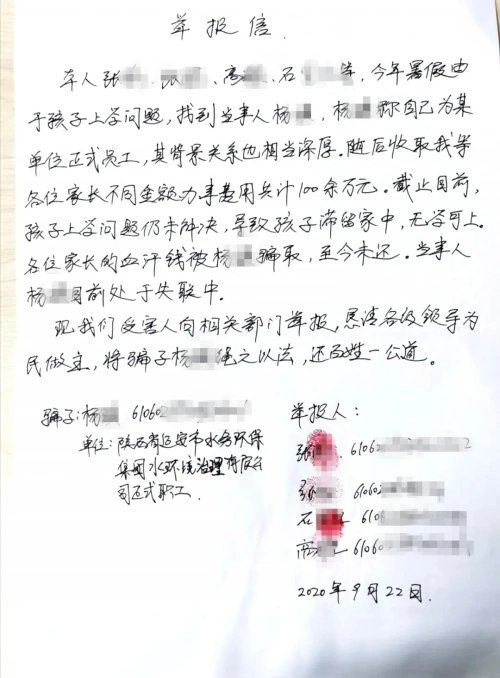 举报信.
本人张 张 、高 、石 等,今年暑假由
于孩子上学问题,找到当事人杨 ,杨 称自己为某
单位正式员工,其背景关系也相当深厚。随后收取我等
各位家长不同金额办事费用共计100余万元。截止目前,
孩子上学问题仍未解决,导致孩子滞留家中,无学可上。
各位家长的血汗钱被杨 骗取,至今未还。当事人
杨 目前处于失联中.
现我们受害人向相关部门举报,恳请各级领导为
民做主,将骗子杨 绳之以法,还百姓一公道。
骗子:杨 610602
单位:陕西省延安市水务环保
集团水环境治理有限公
司正式职工.
举报人:
张 610602 2
张 610602
石 6106
高 6106
2020年9月22日.